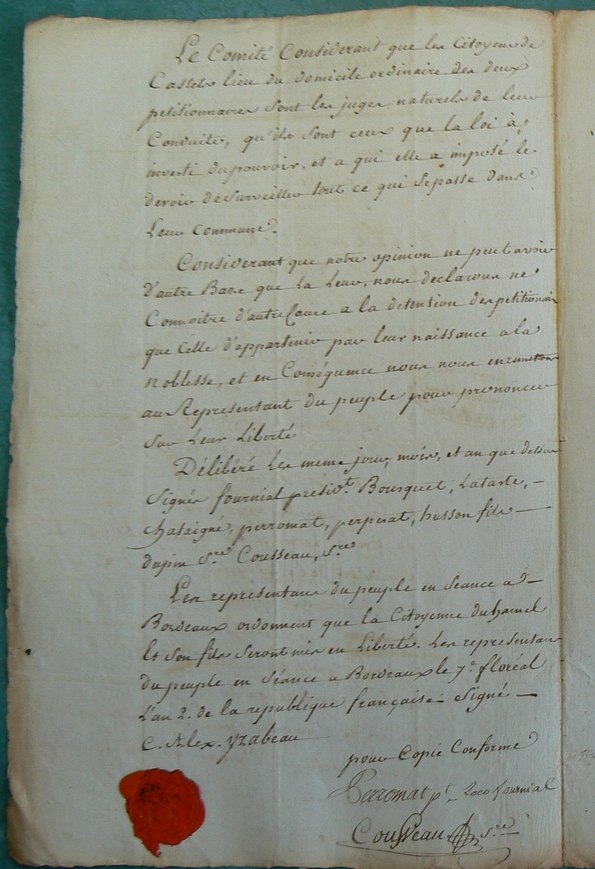 Le Comité Considerant que les Citoyens de
Castels lieu du domicile ordinaire des deux
petitionnaires sont les juges naturels de leur
Conduite, qu'ils sont ceux que la loi à
investi du pouvoir, et a qui elle a imposé le
devoir de surveiller tout ce qui se passe dans
Leur Commune.
Considerant que notre opinion ne peut avoir
d'autre Baze que La Leur, nous declarons ne
Connoitre d'autre Cause a la detension des petitionair
que Celle d'appartenir par leur naissance a la
Noblesse, et en Conséquence nous nous en remettons
au Representant du peuple pour prononcer
sur Leur Liberté
Délibéré Les meme jour, mois, et an que dessus
Signés fournial présidt. Bousquet, Lasarte, -
Chataigné, perromat, perperat, husson fils -
dupin Sre. Cousseau, Sre
Les representans du peuple en Seance a -
Bordeaux ordonnent que la Citoyenne duhamel
Et Son fils Seront mis en Liberté. Les representans
du peuple en Séance a Bordeaux le 7e. floréal
L'an 2. de la republique française. Signé -
C. Alex. yzabeau
pour Copie Conforme
Perromat pt. Loco fournial
Cousseau Sre